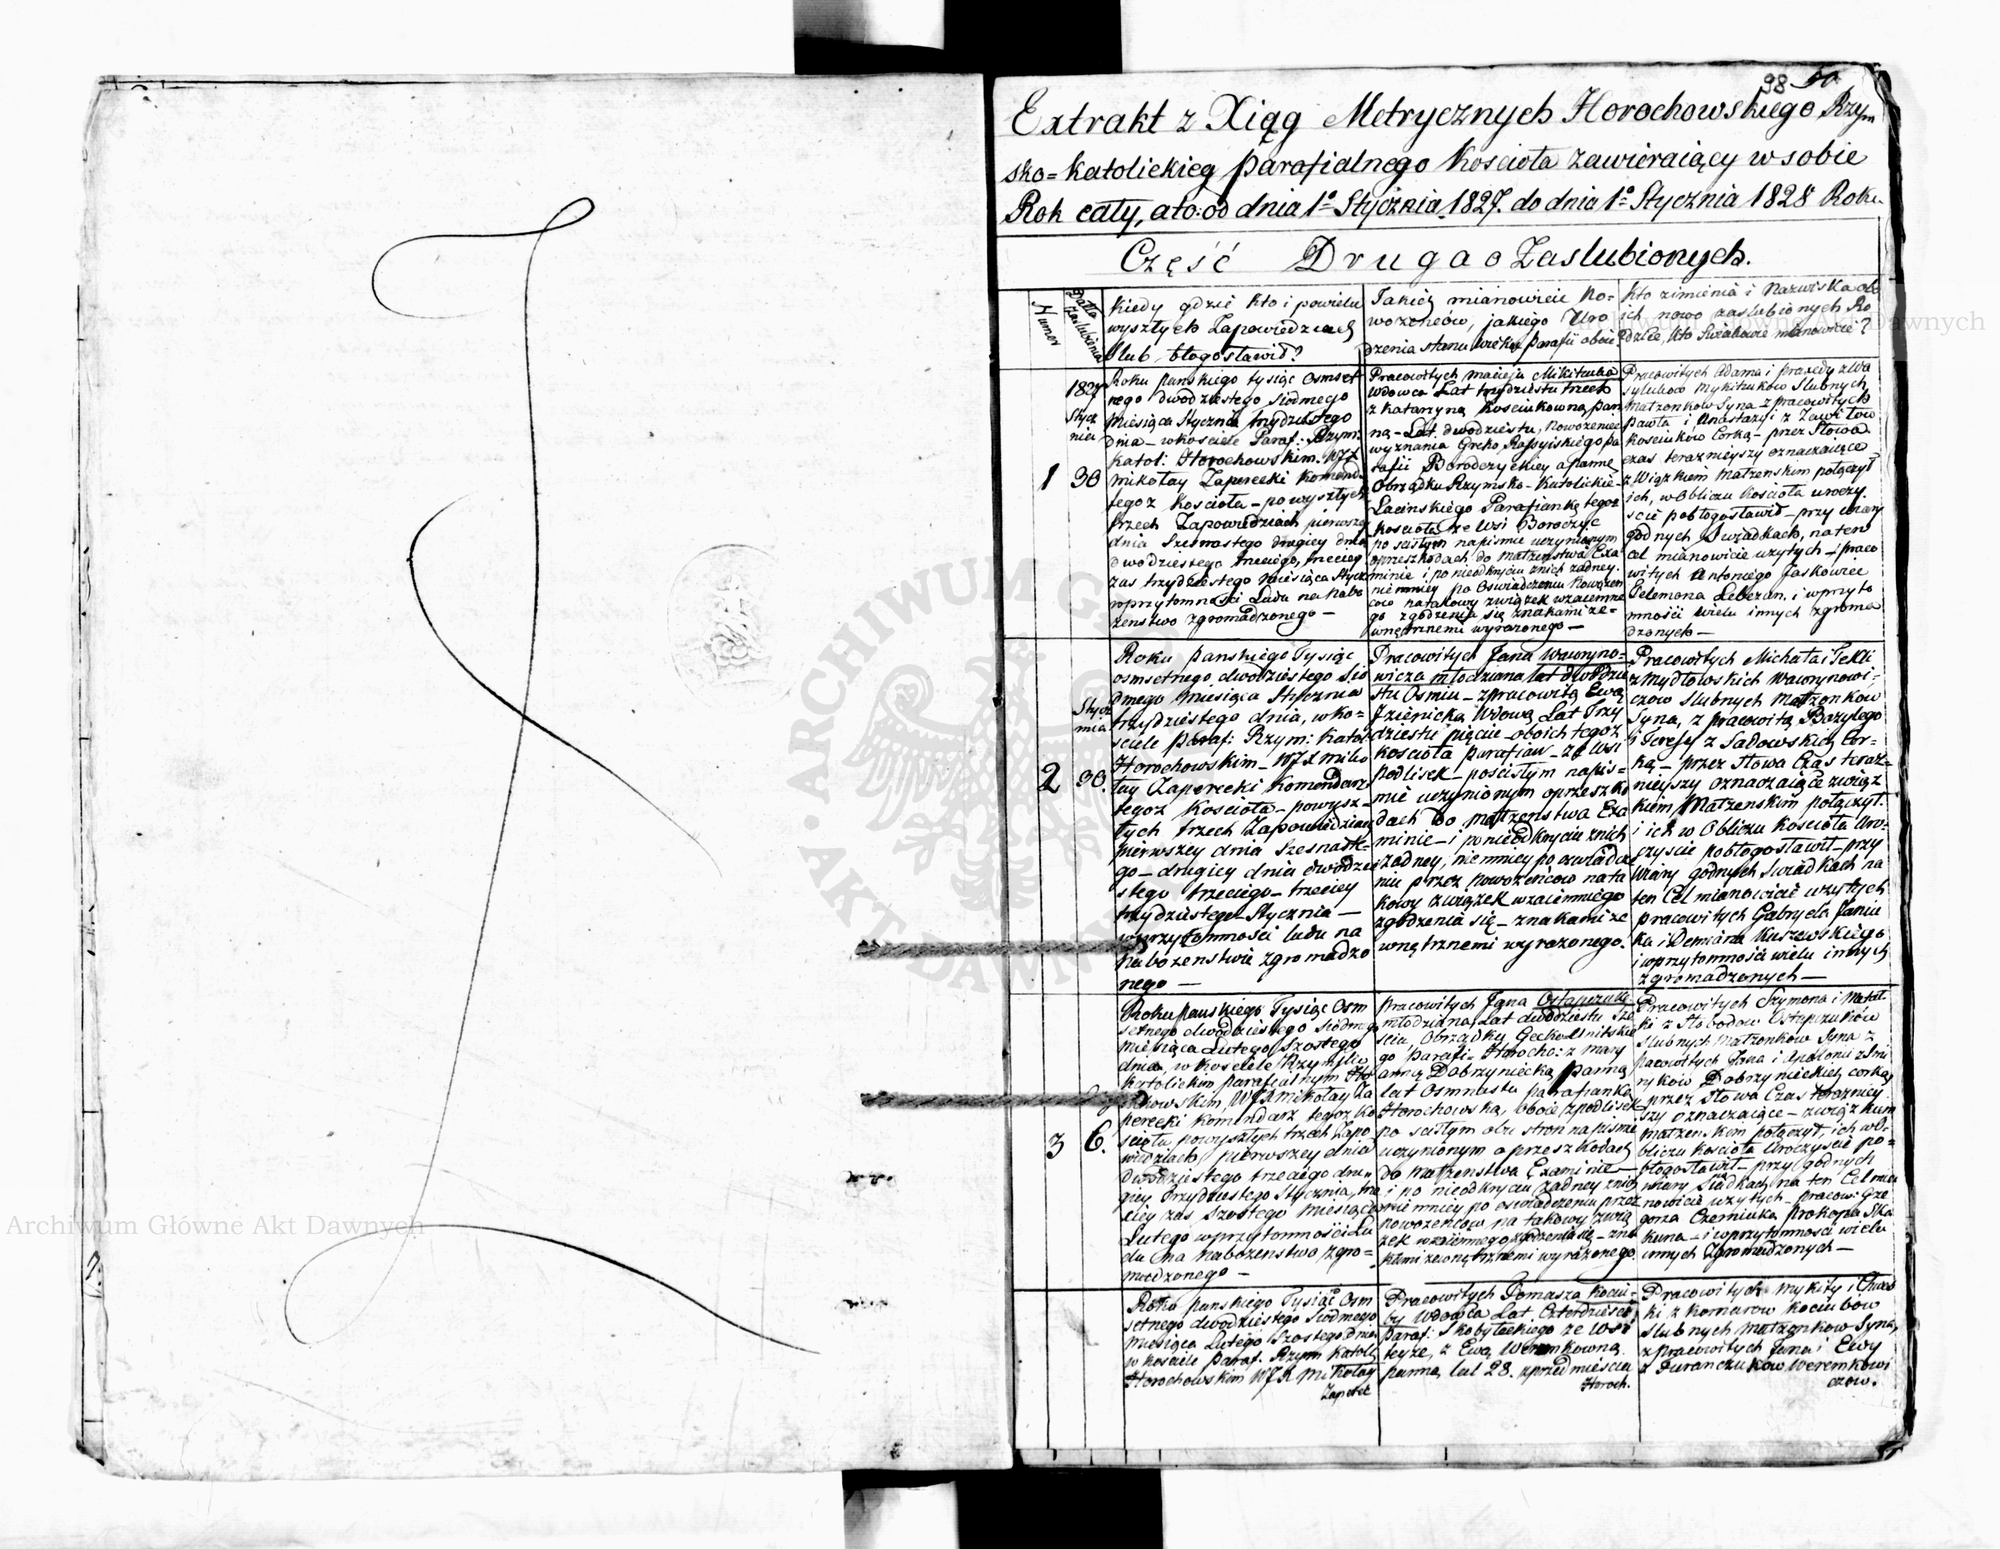 98 50
Extrakt z Xiąg Metrycznych Horochowskiego Rzym
sko=Katolickieg Parafialnego Kościoła zawieraiący w sobie
Rok cały, a to: od dnia 1º Stycznia 1827. do dnia 1º Stycznia 1828 Roku
Część Druga o Zaslubionych.
Numer
Data Zaslubienia
Kiedy gdzie kto i po wielu
wyszłych Zapowiedziach
Slub błogosławił?
Jakich mianowicie No-
wożeńców, jakiego Uro
dzenia stanu wieku Parafii oboie
Kto z imienia i Nazwiska obo
ich nowo zaslubionych Ro
dzice, kto Swiadkowie mianowicie?
1
1827
Stycz
nia
30
Roku panskiego tysiąc osmset
nego dwodziestego Siodmego
Miesiąca Stycznia trzydziestego
dnia – w kosciele Paraf: Rzym:
Katol: Horochowskim. WJX
Mikołay Zaperecki Komend:
tegoz Kościoła – po wyszłych
trzech Zapowiedziach pierwszey
dnia Szesnastego drugiey dnia
dwodziestego trzeciego, trzeciey
zas trzydziestego Miesiąca Stycz:
w przytomności Ludu na nabo
zenstwo zgromadzonego –
Pracowitych Macieja Mikitzuka
Wdowca Lat trzydziestu trzech
z Katarzyną Kosciukowną pan
ną – Lat dwodziestu, Nowozeniec
wyznania Greko Rossyiskiego pa
rafii Borodczyckiey a panna
Obrządku Rzymsko-Katolickie-
Lacinskiego Parafianka tegoz
Kościoła ze Wsi Boroczyc
po scisłym na pismie uczynionym
o przeszkodach do Matzenstwa Exa
minie i po nieodkryciu z nich zadney.
niemniey po Oswiadczeniu Nowozen
cow na takowy związek wzaiemne
go zgodzenia się znakami ze-
wnętrznemi wyrazonego –
Pracowitych Adama i Praxedy z Wa
syluków Mykitzuków Slubnych
Matzonkow Syna – z pracowitych
Pawła i Anastazyi z Zawitow
Kosciukow Corką – przez Słowa
czas teraznieyszy oznaczaiące
z Wiązkiem Matzenskim połączył
ich, w Obliczu Kościoła uroczy.
scie pobłogosławił – przy wiary
godnych Swiadkach, na ten
cel mianowicie uzytych – praco
witych Antoniego Jaskowiec
Felemona Lebezun. i w przyto
mności wielu innych zgroma
dzonych –
2
Stycz
nia
30.
Roku panskiego Tysiąc
osmsetnego, dwodziestego Sio
dmego Miesiąca Stycznia
trzydziestego dnia, w ko-
sciele Paraf: Rzym: Katol:
Horochowskim – WJX Miko
łay Zaperecki Komendarz
tegoz Kościoła – po wysz-
łych trzech Zapowiedziach
pierwszey dnia Szesnaste-
go – drugiey dnia dwodzie
stego trzeciego – trzeciey
trzydziestego Stycznia –
w przytomności ludu na
nabozenstwie zgromadzo
nego –
Pracowitych Jana Wawryno-
wicza młodziana lat dwodzie
stu Osmiu – z pracowitą Ewą
Jzienicką Wdową Lat Trzy
dziestu pięciu – oboich tegoz
Kościoła Parafian – ze Wsi
Podlisek – po scisłym na pis-
mie uczynionym o przeszko
dach do Matzenstwa Exa
minie – i po nieodkryciu z nich
zadney, niemniey po oswiadcze
niu przez Nowozencow na ta
kowy związek wzaiemniego
zgodzenia się – znakami ze
wnętrznemi wyrazonego.
Pracowitych Michała i Tekli
z Mydłowskich Wawrynowi-
czow Slubnych Matzonkow
Syna, z pracowitą Bazylego
i Teresy z Sadowskich Cor-
ką – przez Słowa Czas teraz-
nieyszy oznaczaiące związ
kiem Matzenskim połączył.
i ich w Obliczu Kościoła Uro-
czyscie pobłogosławił – przy
Wiary godnych Swiadkach na
ten Cel mianowicie uzytych
pracowitych Gabryela Janiu
ka i Demiana Kuszewskiego
i w przytomności wielu innych
zgromadzonych –
3
6.
Roku panskiego Tysiąc Osm
setnego dwodziestego Siodmego
miesiąca Lutego Szostego
dnia, w Kosciele Rzymsko
Katolickim parafialnym Ho
rochowskim, WJX Mikołay Za
perecki Komendarz tegoz Ko
scioła po wyszłych trzech Zapo
wiedziach pierwszey dnia
dwodziestego trzeciego dru-
giey Trzydziestego Stycznia, trze
ciey zas Szostego Miesiąca
Lutego w przytomności Lu
du na Nabozenstwo zgro-
madzonego –
Pracowitych Jgna Ostapczuka
młodziana, Lat dwodziestu Sze
sciu, Obrządku Grecko Unitskie
go Parafi. Horocho: z Mary
anną Dobrzyniecką, panną
lat Osmnastu parafianką
Horochowską, oboie z Podlisek
po scisłym obu stron na pismie
uczynionym o przeszkodach
do Matzenstwa Examinie –
i po nieodkryciu zadney z nich
niemniey po oswiadczeniu przez
nowozencow na takowy zwią
zek wzaiemnego zgodzenia się – zna
kami zewnętrznemi wyrazonego.
Pracowitych Szymona i Matat
ki z Słobodow Ostapczuków
Slubnych Matzonkow Syna z
Pacowitych Jana i Apolonii z Smi
rykow Dobrzynieckich corką
przez Słowa Czas terazniey
szy oznaczaiące – związkiem
matzenskim połączył, ich w O-
bliczu Kościoła Uroczyscie po=
błogosławił – przy godnych
wiary Siadkach na ten Cel mia
nowicie uzytych – pracow: Grze
gorza Czerniuka Prokopa Ska
kuna – i w przytomności wielu
innych Zgromadzonych –
Roku panskiego Tysiąc Osm
setnego dwodziestego Siodmego
Miesiąca Lutego Szostego dnia
w Kościele Paraf. Rzym Katol:
Horochowskim WJX Mikołay
Zaperec
Pracowitych Tomasza Kociu-
by Wdowca Lat Czterdziestu
Paraf: Skobyłeckiego ze Wsi
teyze, z Ewą Weremkowną
panną lat 28. z przedmiescia
Horoch.
Pracowitych Mykity i Chwes
ki z Komarow Kociubow
Slubnych Matzonkow Syna,
z pracowitych Jana i Ewy
z Furanczukow Weremkowi
czow.
ARCHIWUM GŁÓWNE AKT DAWNYCH
Archiwum Główne Akt Dawnych
Archiwum Główne Akt Dawnych